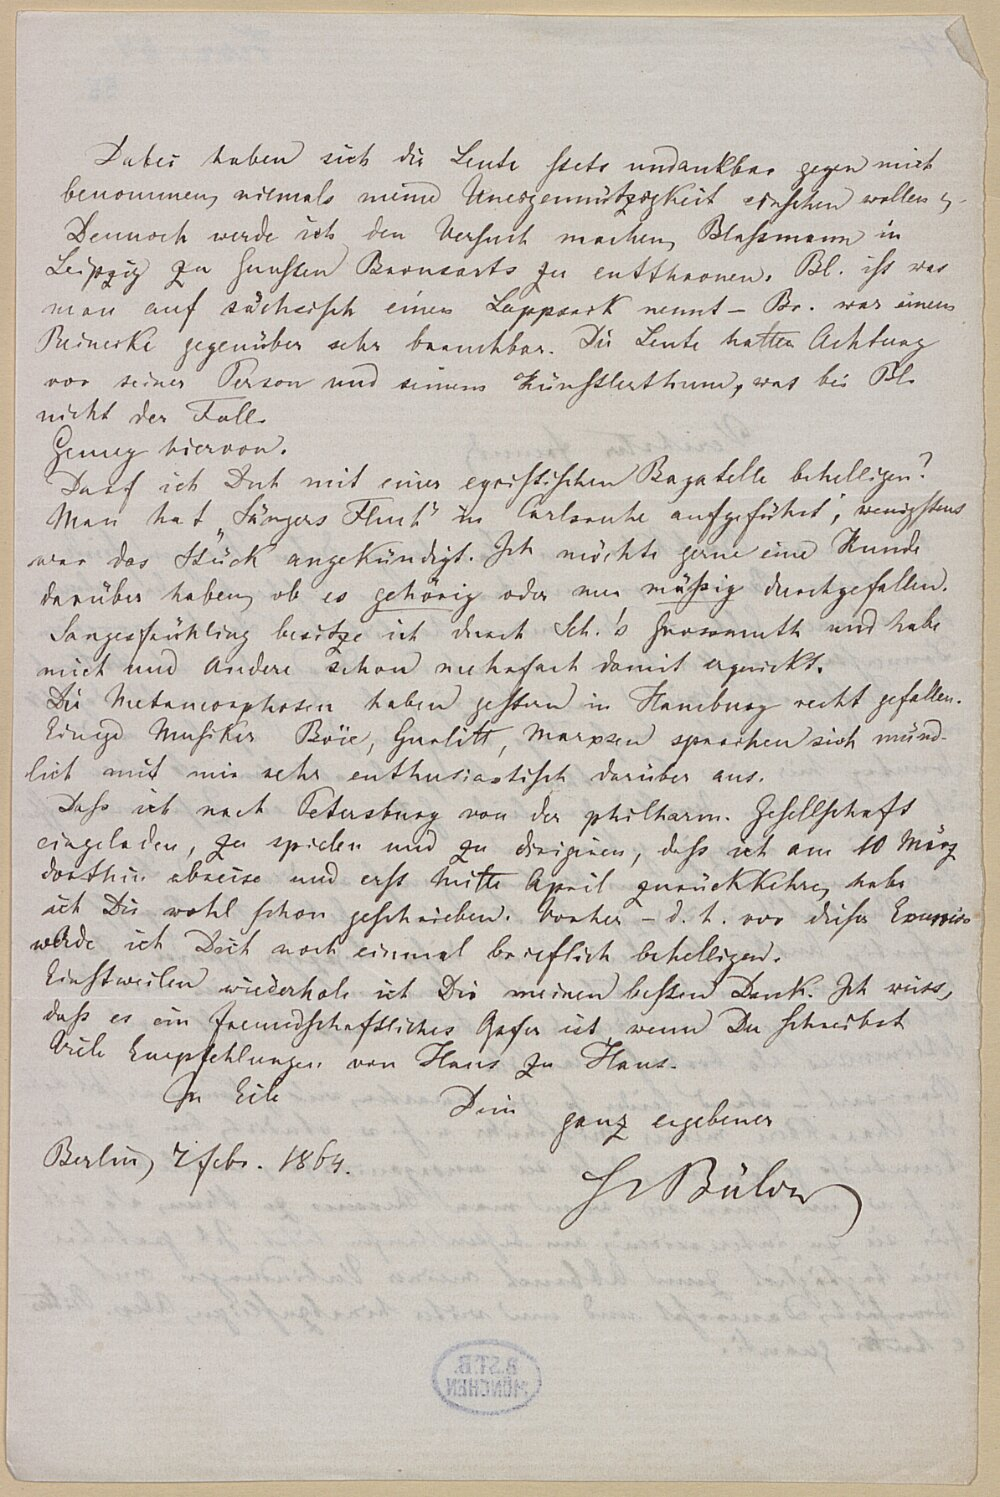 Dabei haben sich die Leute stets undankbar gegen mich
benommen, niemals meine Uneigennützigkeit einsehen wollen
Dennoch werde ich den Versuch machen, Blaßmann in
Leipzig zu Gunsten Bronsarts zu entthronen. Bl. ist was
man auf sächsisch einen Lappsack nennt – Br. war einem
Reinecke gegenüber sehr brauchbar. Die Leute hatten Achtung
vor seiner Person und seinem Künstlerthum, was bei Bl.
nicht der Fall.
Genug hiervon.
Darf ich Dich mit einer egoistischen Bagatelle behelligen?
Man hat „Sängers Fluch“ in Carlsruhe aufgeführt, wenigstens
war das Stück angekündigt. Ich möchte gerne eine Kunde
darüber haben, ob es gehörig oder nur mäßig durchgefallen.
Sangesfrühling besitze ich durch Sch.'s Grossmuth und habe
mich und Andere schon mehrfach damit erquickt.
Die Metamorphosen haben gestern in Hamburg recht gefallen.
Einige Musiker Böie, Gurlitt, Marxsen sprachen sich münd-
lich mit mir sehr enthusiastisch darüber aus.
Daß ich nach Petersburg von der philharm. Gesellschaft
eingeladen, zu spielen und zu dirigiren, daß ich am 10 März
dorthin abreise und erst Mitte April zurückkehre, habe
ich Dir wohl schon geschrieben. Vorher – d. h. vor dieser Excursion
werde ich Dich noch einmal brieflich behelligen.
Einstweilen wiederhole ich Dir meinen besten Dank. Ich weiss,
daß es ein freundschaftliches Opfer ist, wenn Du schreibst
Viele Empfehlungen von Haus zu Haus.
In Eile
Dein
ganz ergebener
Berlin, 7 febr. 1864.
Hv Bülow
B.ST.B.
MÜNCHEN